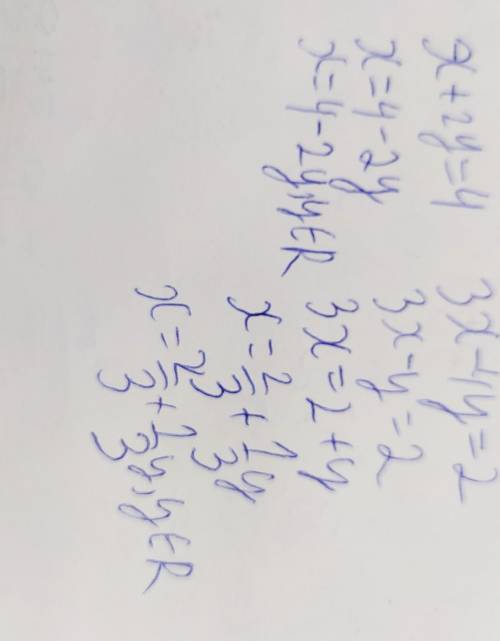 x+2y=4
x=4-2y
x=4-2y, y∈R
3x-1y=2
3x-y=2
3x=2+y
x=2/3+1/3y
x=2/3+1/3y, y∈R